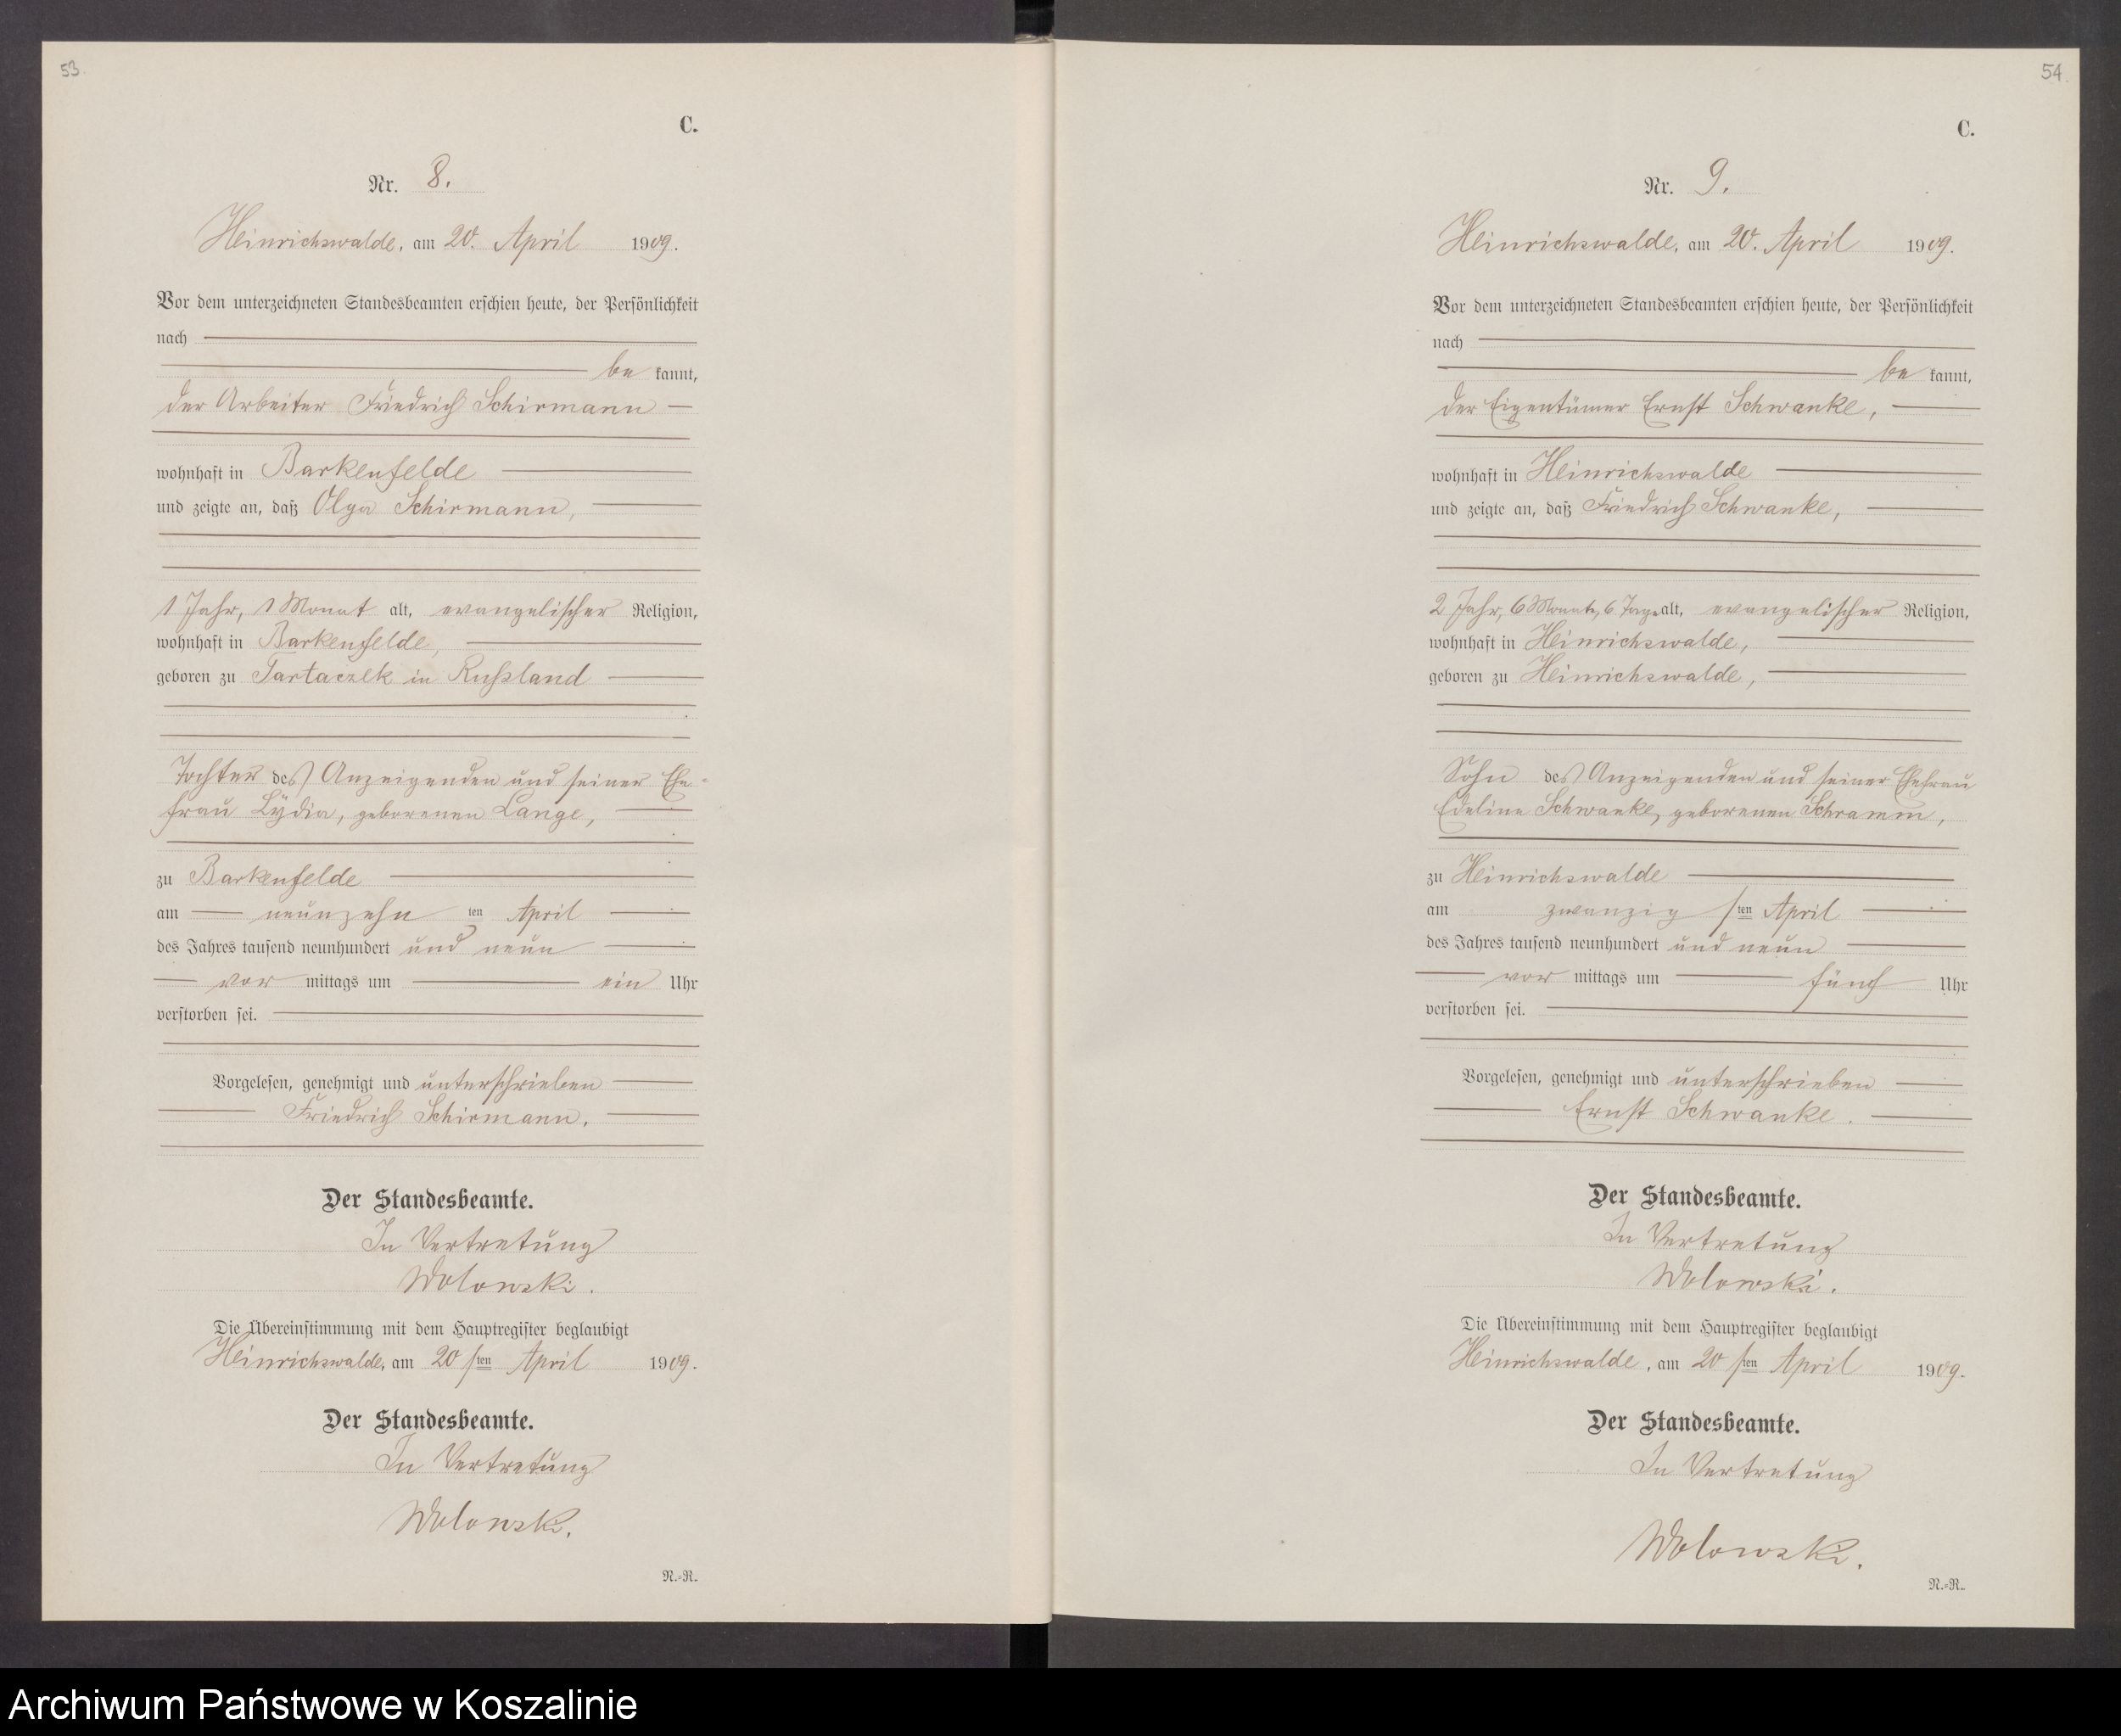 53.
C.
Nr. 8.
Heinrichswalde, am 20. April 1909.
Vor dem unterzeichneten Standesbeamten erschien heute, der Persönlichkeit
nach
be kannt,
der Arbeiter Friedrich Schirmann
wohnhaft in Barkenfelde
und zeigte an, daß Olga Schirmann,
1 Jahr, 1 Monat alt, evangelischer Religion,
wohnhaft in Barkenfelde,
geboren zu Tartaczek in Russland
Tochter des Anzeigenden und seiner Ehe-
frau Lydia, geborenen Lange,
zu Barkenfelde
am neunzehn ten April
des Jahres tausend neunhundert und neun
vor mittags um ein Uhr
verstorben sei.
Vorgelesen, genehmigt und unterschrieben
Friedrich Schirmann.
Der Standesbeamte.
In Vertretung
Wolowski.
Die Übereinstimmung mit dem Hauptregister beglaubigt
Heinrichswalde, am 20 sten April 1909.
Der Standesbeamte.
In Vertretung
Wolowski.
N.-R.
54.
C.
Nr. 9.
Heinrichswalde, am 20. April 1909.
Vor dem unterzeichneten Standesbeamten erschien heute, der Persönlichkeit
nach
be kannt,
der Eigentümer Ernst Schwanke,
wohnhaft in Heinrichswalde
und zeigte an, daß Friedrich Schwanke,
2 Jahr, 6 Monate, 6 Tage alt, evangelischer Religion,
wohnhaft in Heinrichswalde,
geboren zu Heinrichswalde,
Sohn des Anzeigenden und seiner Ehefrau
Edeline Schwanke, geborenen Schramm,
zu Heinrichswalde
am zwanzig sten April
des Jahres tausend neunhundert und neun
vor mittags um fünf Uhr
verstorben sei.
Vorgelesen, genehmigt und unterschrieben
Ernst Schwanke.
Der Standesbeamte.
In Vertretung
Wolowski.
Die Übereinstimmung mit dem Hauptregister beglaubigt
Heinrichswalde, am 20 sten April 1909.
Der Standesbeamte.
In Vertretung
Wolowski.
N.-R.
Archiwum Państwowe w Koszalinie